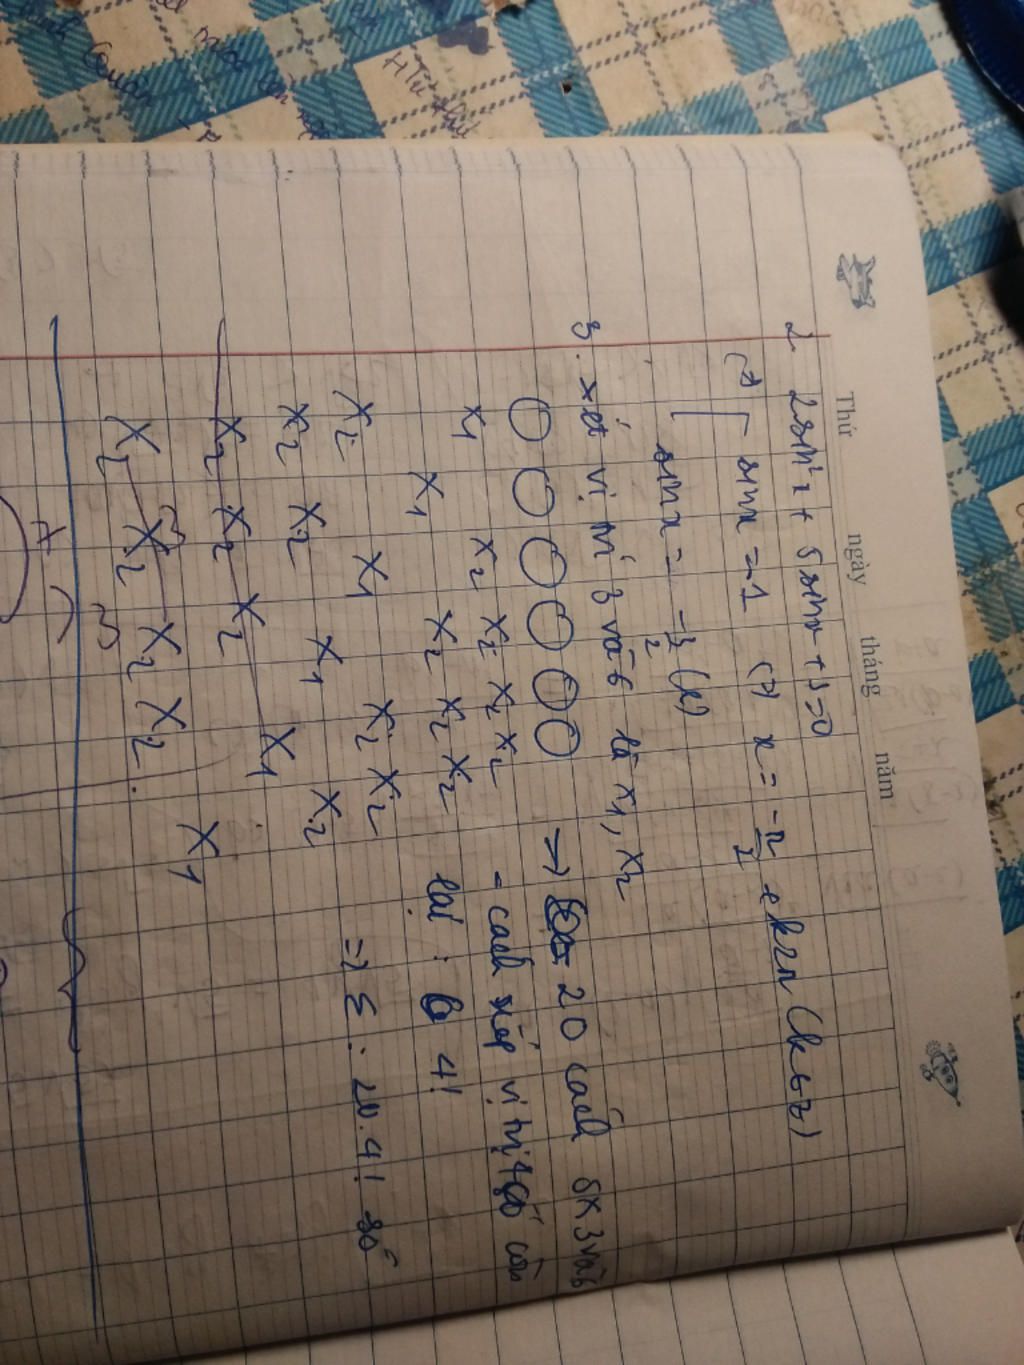 Thứ ngày tháng năm
2. 2sin²x + 5sinx + 3 = 0
(=) [ sinx = -1 (=) x = -π/2 + k2π (k∈Z)
sinx = -3/2 (l)
3. xét vị trí 3 và 6 là x1, x2
→ 20 cách SX 3 và 6
x1 x2 x2 x2 x2 - cách xếp vị trí 4 số còn
x1 x2 x2 x2 lại : 4!
x2 x1 x2 x2 => S : 20.4! số
x2 x2 x1 x2
x2 x2 x2 x1
x2 x2 x2 x2 x1